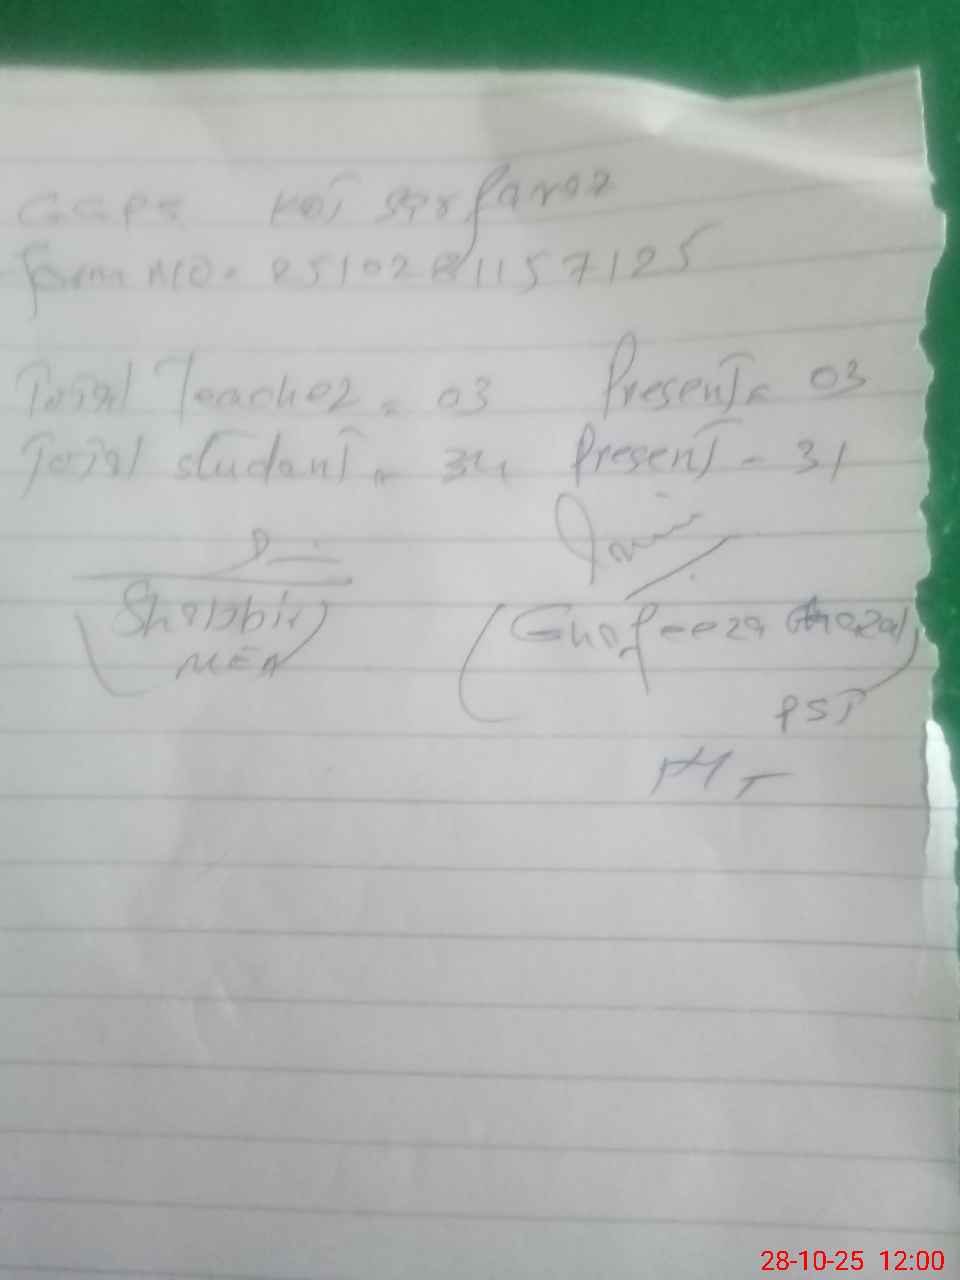 GGPS Kot Sarfaraz
Form NO. 2510281157125
Total Teacher = 03 Present = 03
Total student = 34 Present - 31
(Shabbir)
MEA
PST
PHT
28-10-25 12:00